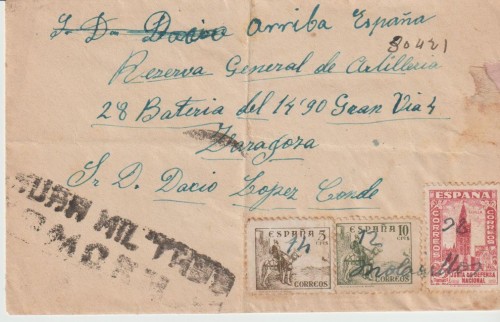 S. D. Dacio Arriba España
30421
Reserva General de Artilleria
28 Bateria del 14'90 Gran Via 4
Zaragoza
Sr. D. Dacio Lopez Conde
MIL
ESPAÑA
5
CTS
CORREOS
14
ESPAÑA
10
CTS
CORREOS
12
ESPAÑA
CORREOS
JUNTA DE DEFENSA
NACIONAL